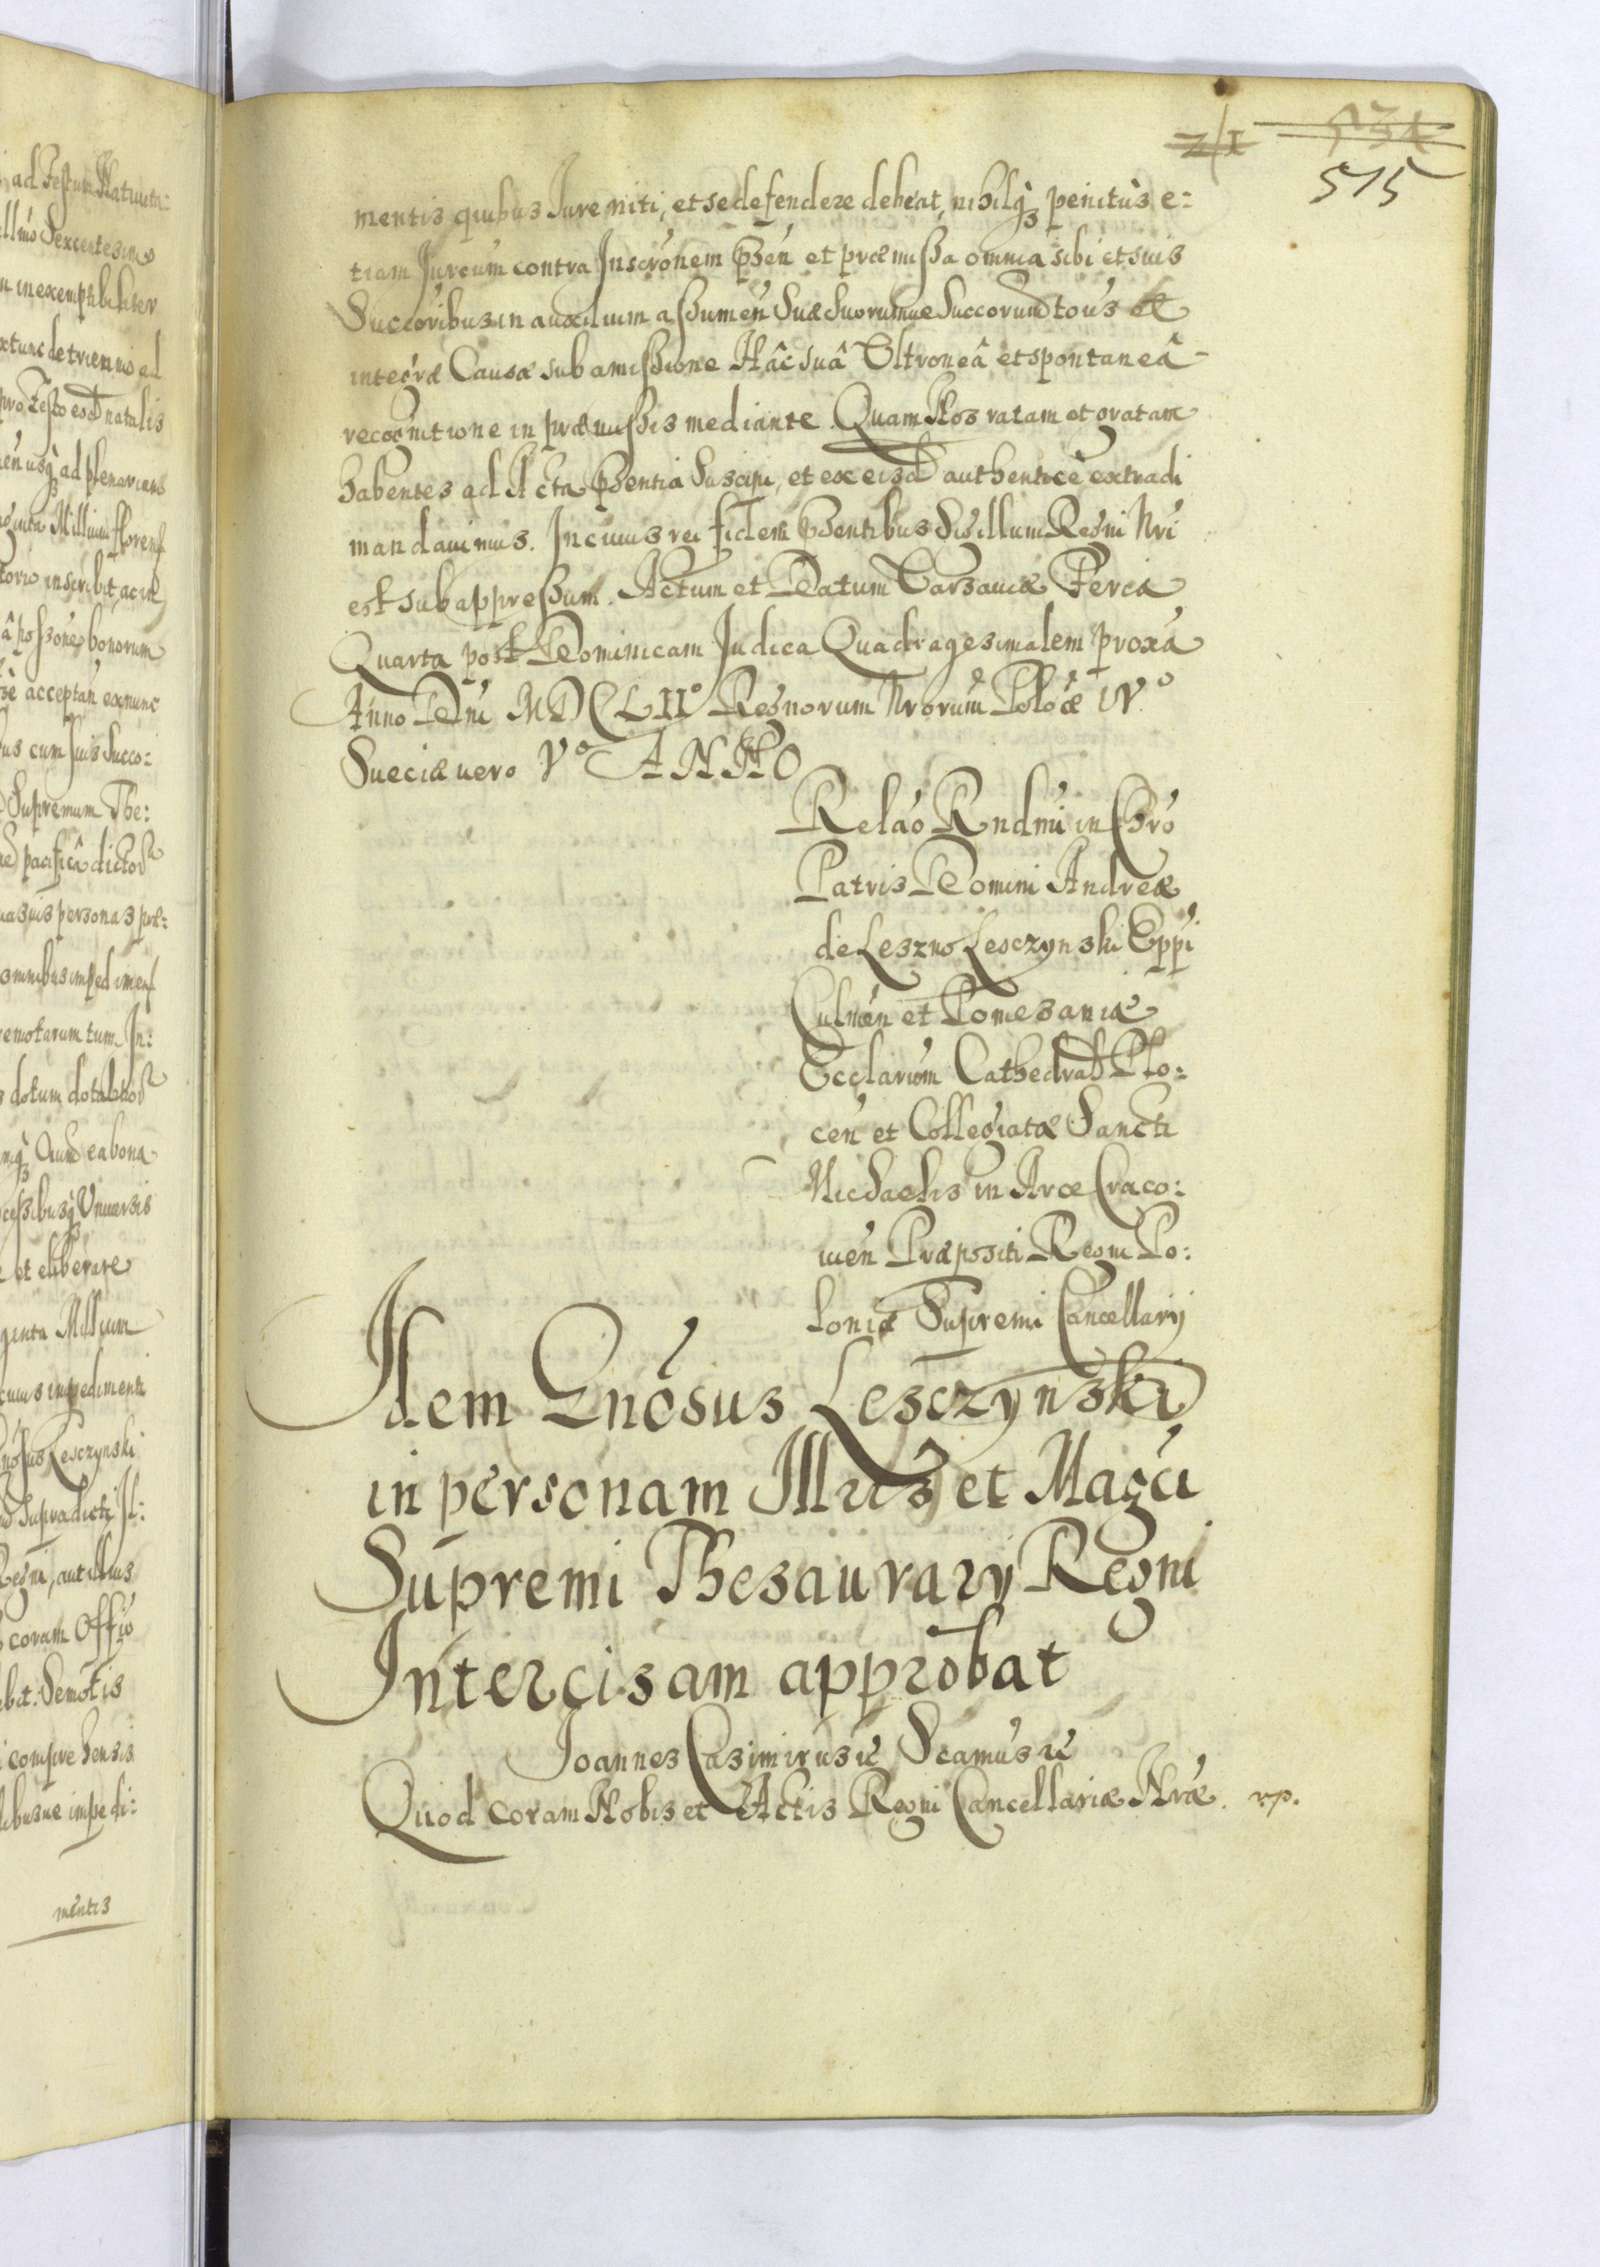 211 531
515
mentis quibus Jure niti, et se defendere debeat, nihilq3 penitùs e:
tiam Jureum contra Inscrónem pñsen et præmissa omnia sibi et suis
Succoribus in auxilium assumen̄ Suæ Suorumue Succorum totius et
integræ Causæ sub amissione Hâc suâ Vltroneâ et spontaneâ
recognitione in præmissis mediante. Quam Nos ratam et gratam
habentes ad Acta pñsentia Suscipi, et ex eisd authenticè extradi
mandauimus. In cuius rei fidem pñsentibus Sigillum Regni Nr̄i
est subappressum. Actum et Datum Varsauiæ Feria
Quarta post Dominicam Judica Quadragesimalem proxá
Anno Dn̄i MDCLIIº Regnorum Nrorum Polōæ IVº
Sueciæ uero Vº ANNO
Relaó Rndmi in Chrō
Patris Domini Andreæ
de Leszno Lesczynski Eppi
Culmen̄ et Pomesaniæ
Ecclarum Cathedral Plo:
cen̄ et Collegiatæ Sancti
Michaelis in Arce Craco:
uien̄ Præpositi Regni Po:
loniæ Supremi Cancellarij
Idem Gnōsus Lesczynski
in personam Illris et Magci
Supremi Thesaurarij Regni
Intercisam approbat
Joannes Casimirus ic Scamus ic
Quod coram Nobis et Actis Regni Cancellariæ Nræ. rp.
ad Festum Natiuita:
Sexcentesimo
inexemptibiliter
extunc de triennio ad
pro Festo eod natalis
usq3 ad plenariam
Millium floren
inscribit, ac in
bonorum
acceptan̄ exnunc
cum suis Succo:
Supremum The:
pacificâ dictor
personas
omnibus
remotarum tum In:
dotum dotalitior
ea bona
Vniuersis
et eliberare
Millium
impedimenti
Lesczynski
Supradicti Il:
Regni, aut illius
coram Offio
Semotis
comprehensis
impedi:
mentis